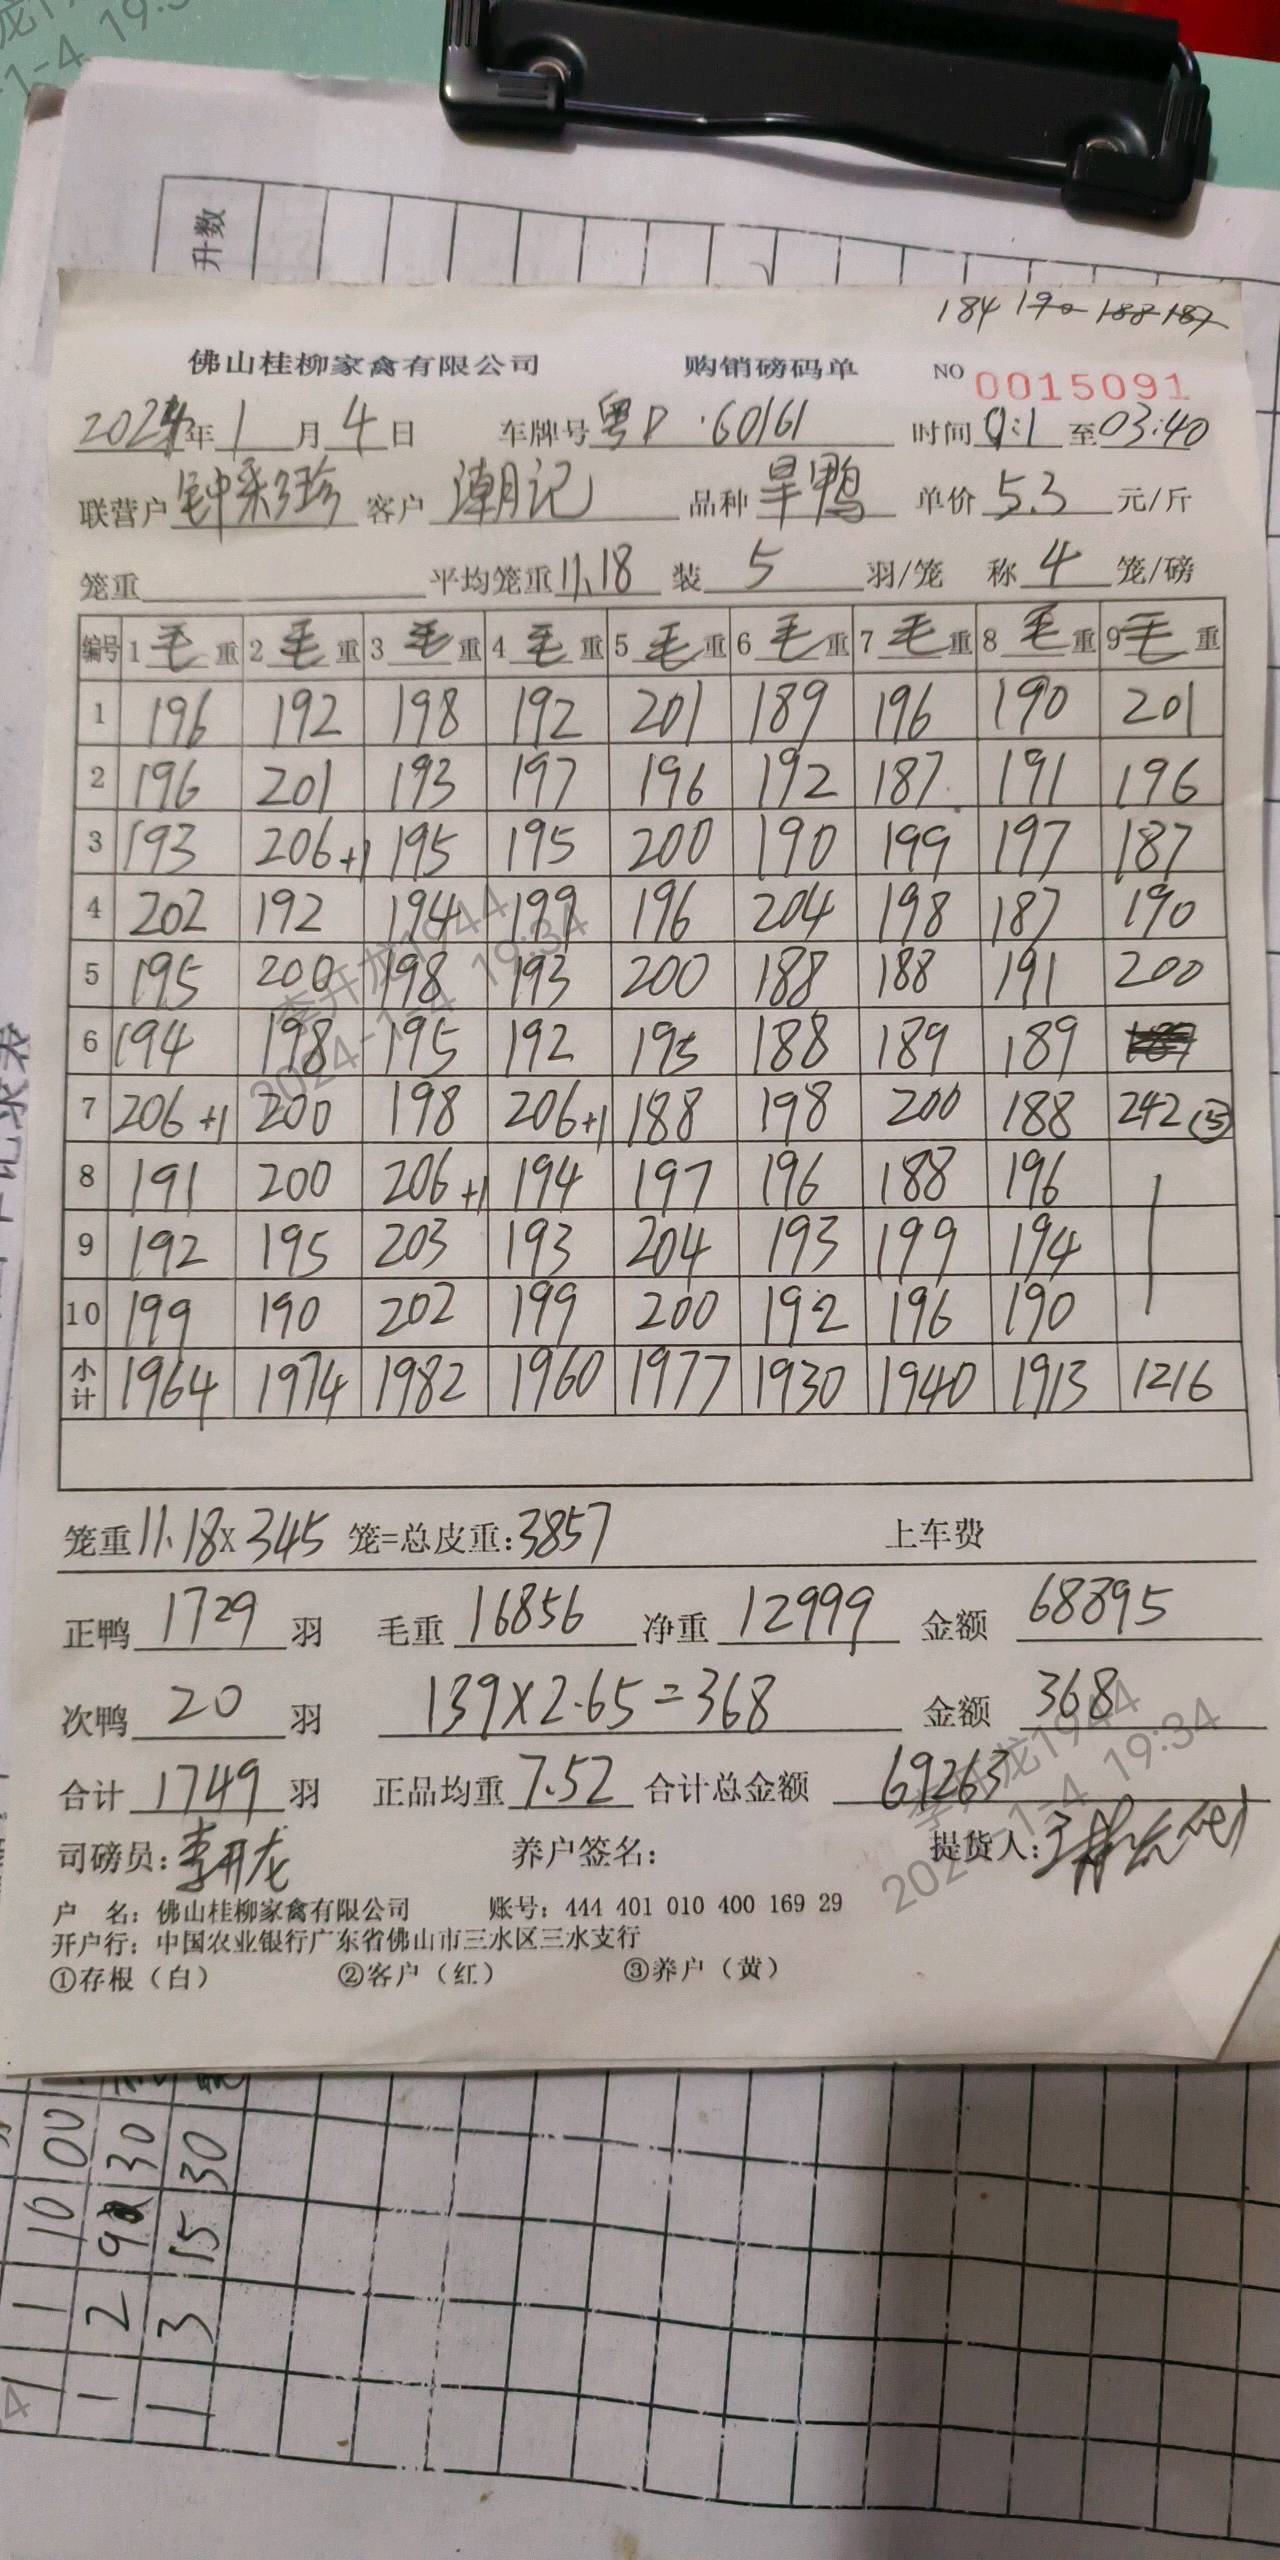 升数
184 190 188 187
佛山桂柳家禽有限公司 购销磅码单 NO 0015091
2024年1月4日 车牌号 粤P·60161 时间 至03:40
联营户 钟采珍 客户 潮记 品种 旱鸭 单价 5.3 元/斤
笼重 平均笼重 11.18 装 5 羽/笼 称 4 笼/磅
编号 1毛重 2毛重 3毛重 4毛重 5毛重 6毛重 7毛重 8毛重 9毛重
1 196 192 198 192 201 189 196 190 201
2 196 201 193 197 196 192 187 191 196
3 193 206+1 195 195 200 190 199 197 187
4 202 192 194 199 196 204 198 187 190
5 195 200 198 193 200 188 188 191 200
6 194 198 195 192 195 188 189 189
7 206+1 200 198 206+1 188 198 200 188 242⑤
8 191 200 206+1 194 197 196 188 196
9 192 195 203 193 204 193 199 194
10 199 190 202 199 200 192 196 190
小计 1964 1974 1982 1960 1977 1930 1940 1913 1216
笼重 11.18×345 笼=总皮重:3857 上车费
正鸭 1729 羽 毛重 16856 净重 12999 金额 68895
次鸭 20 羽 139×2.65=368 金额 368
合计 1749 羽 正品均重 7.52 合计总金额 69263
司磅员:李开龙 养户签名: 提货人:
户 名:佛山桂柳家禽有限公司 账号:444 401 010 400 169 29
开户行:中国农业银行广东省佛山市三水区三水支行
①存根(白) ②客户(红) ③养户(黄)
李开龙1944
2024-1-4 19:34
李开龙1944
2024-1-4 19:34
1 10 00
2 9 30
3 15 30